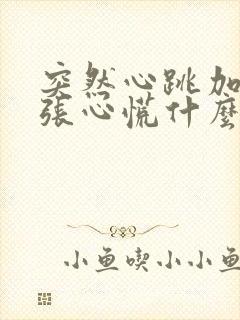 突然心跳加
張心慌什麼
小魚喫小小魚